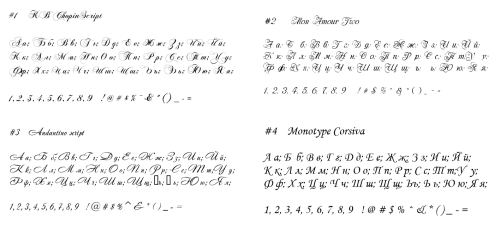 #1 K B Chopin Script
Аа; Бб; Вв; Гг; Дд; Ее; Жж; Зз; Ии; Йй;
Кк; Лл; Мм; Нн; Оо; Пп; Рр; Сс; Тт; Уу;
Фф; Хх; Цц; Чч; Шш; Щщ; Ъъ; Ьь; Юю; Яя;
1, 2, 3, 4, 5, 6, 7, 8, 9 !@ # $ % ^ & * ( ) _ - =
#2 Mon Amour Two
Аа; Бб; Вв; Гг; Дд; Ее; Жж; Зз; Ии; Йй;
Кк; Лл; Мм; Нн; Оо; Пп; Рр; Сс; Тт; Уу;
Фф; Хх; Цц; Чч; Шш; Щщ; ъ; ь; Юю; Яя;
1, 2, 3, 4, 5, 6, 7, 8, 9 ! # $ % ^ & * ( ) _ - =
#3 Andantino script
Аа; Бб; Вв; Гг; Дд; Ее; Жж; Зз; Ии; Йй;
Кк; Лл; Мм; Нн; Оо; Пп; Рр; Сс; Тт; Уу;
Фф; Хх; Цц; Чч; Шш; Щщ; ь; Юю; Яя;
1, 2, 3, 4, 5, 6, 7, 8, 9 ! @ # $ % ^ & * ( ) _ - =
#4 Monotype Corsiva
Аа; Бб; Вв; Гг; Дд; Ее; Жж; Зз; Ии; Йй;
Кк; Лл; Мм; Нн; Оо; Пп; Рр; Сс; Тт; Уу;
Фф; Хх; Цц; Чч; Шш; Щщ; Ъъ; Ьь; Юю; Яя;
1, 2, 3, 4, 5, 6, 7, 8, 9 ! @ # $ % ^ & * ( ) _ - =